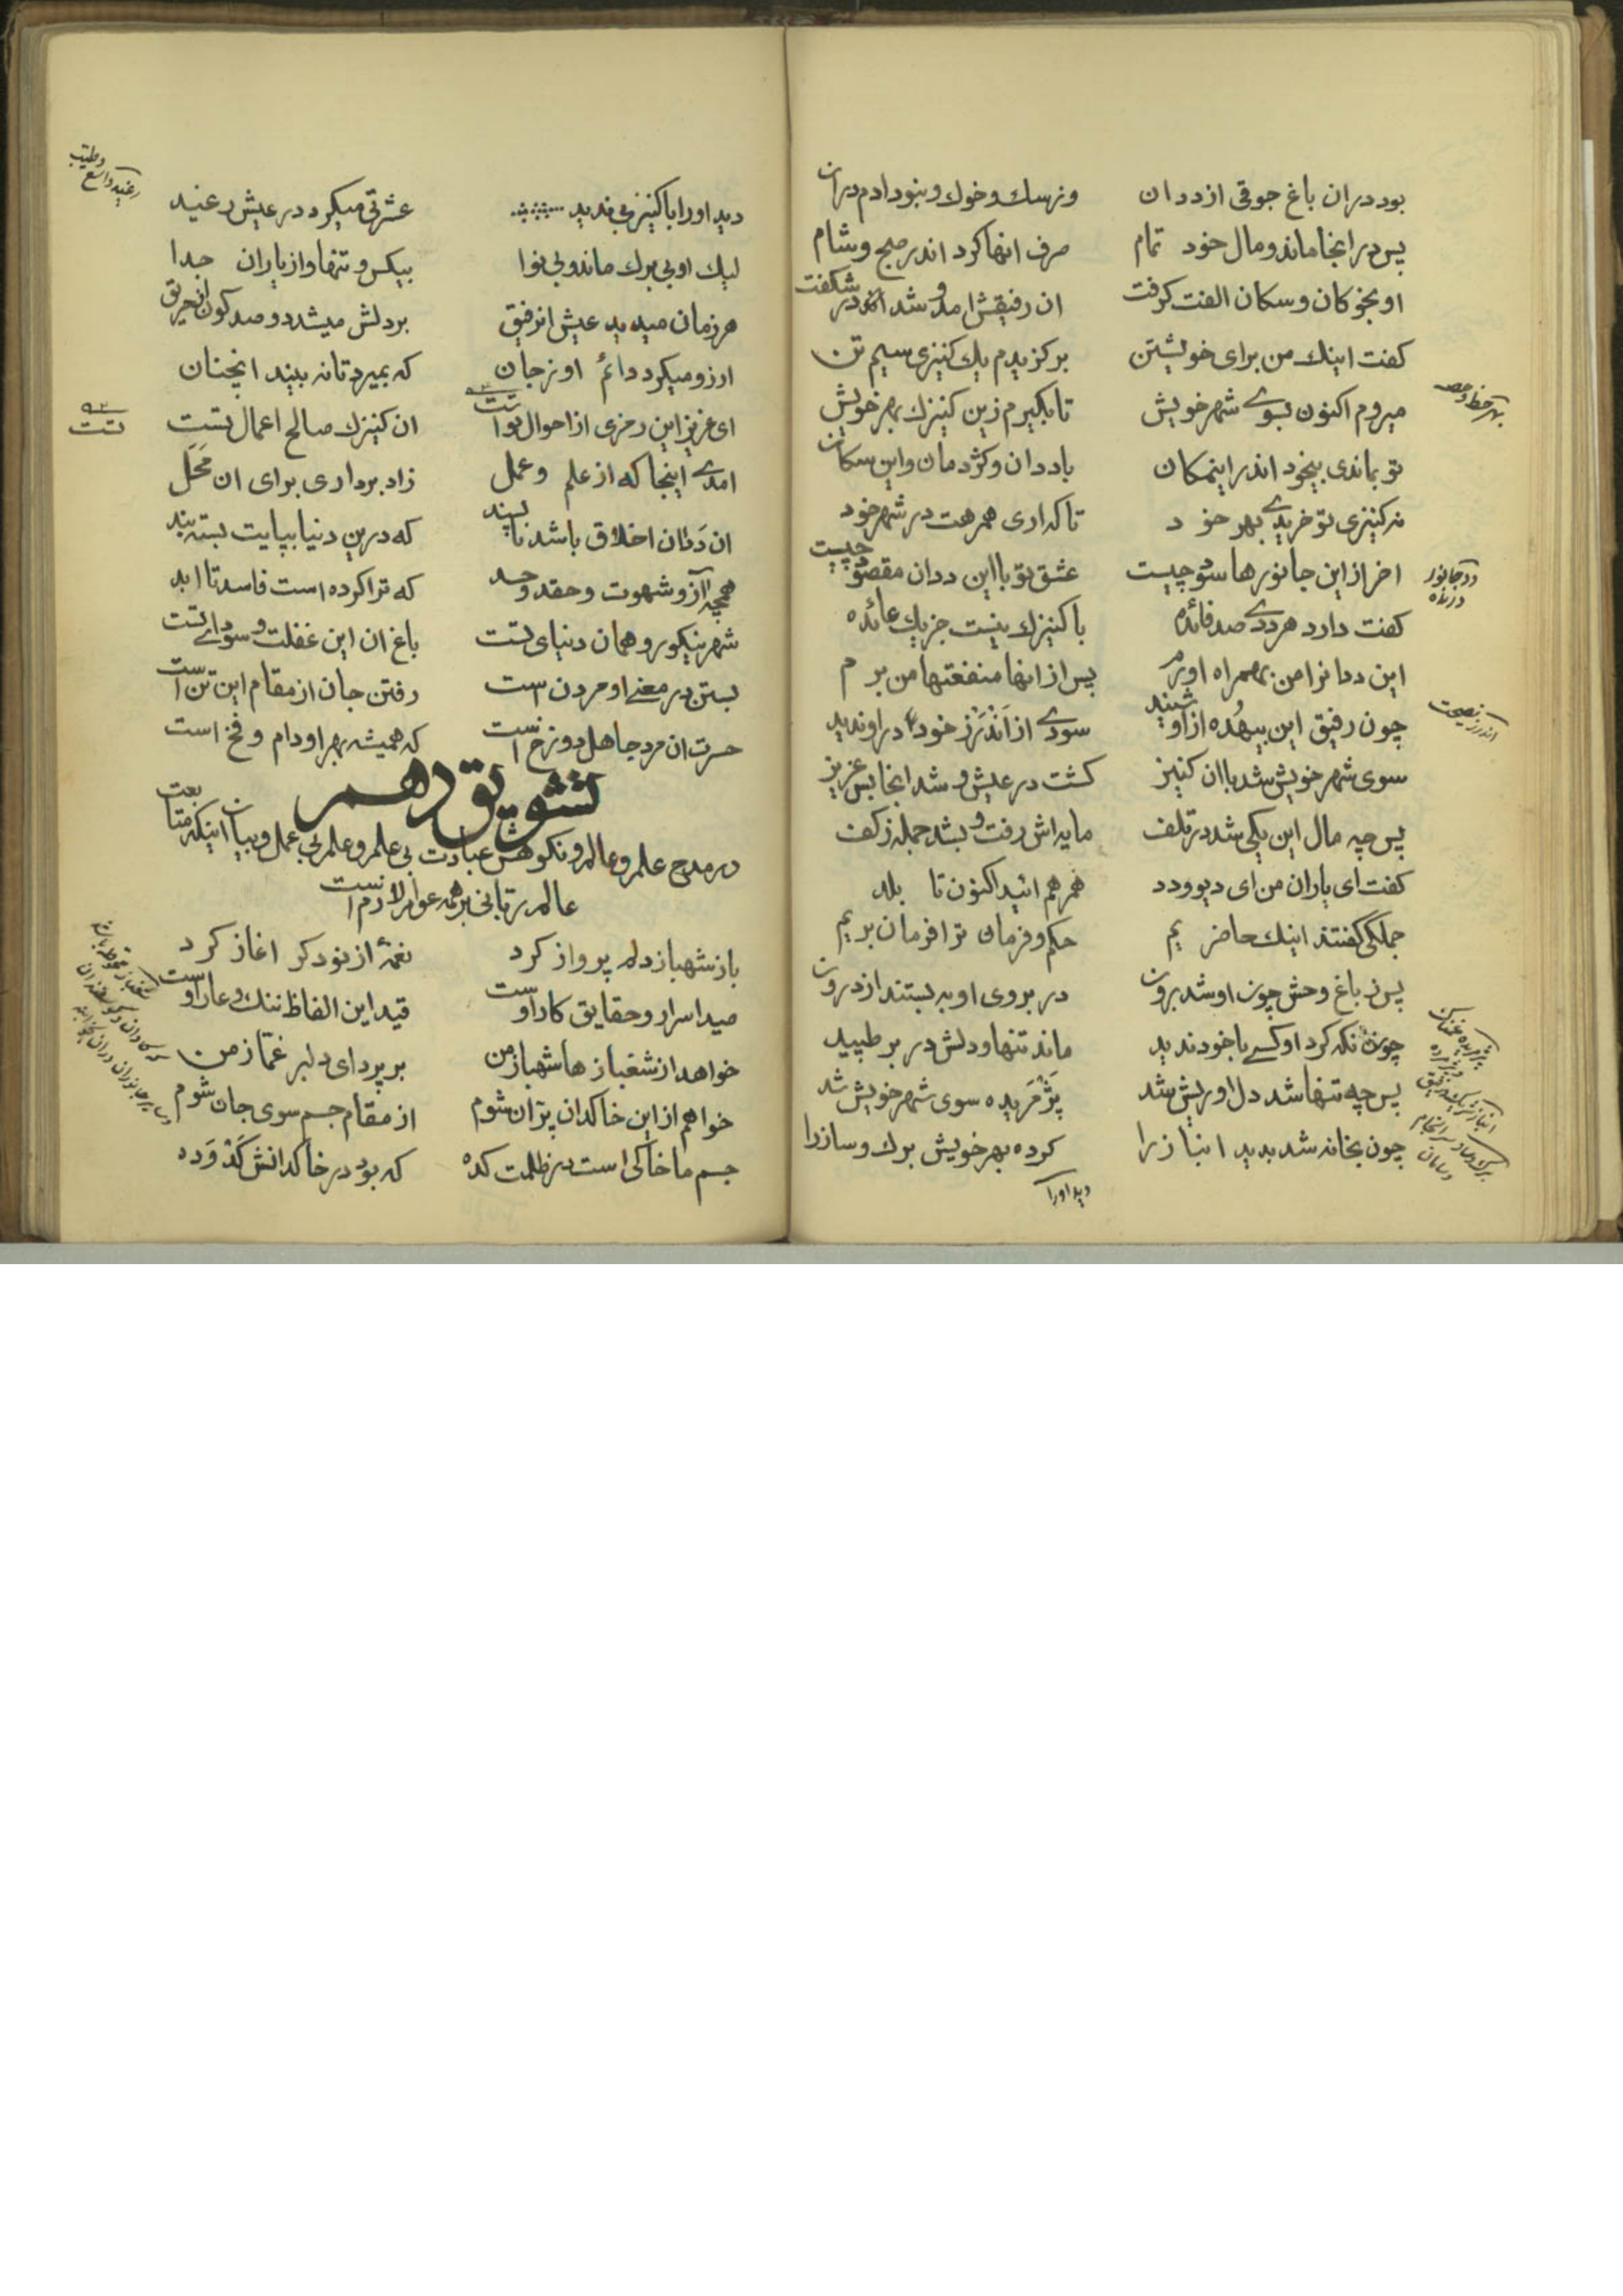 بود دران باغ جوقی از ددان ونرسك وخوك ونبود ادم دران
پس درانجا ماند ومال خود تمام صرف انها كرد اندر صبح وشام
او بخوكان وسكان الفت كرفت ان رفیقش امد و شد اندر شكفت
كفت اینك من برای خویشتن بركزیدم یك كنیزی سیم تن
میروم اكنون بسوے شهر خویش تا بكیرم زین كنیزك بهر خویش
بهر حظ وحصه
تو بماندی بیخود اندر اینمكان با ددان وكژدمان واین سكان
نه كنیزی تو خریدے بهر خود تا كه اری همرهت در شهر خود
اخر از این جانورها سود چیست عشق تو با این ددان مقصود چیست
دد جانور درنده
كفت دارد هر ددے صد فائده با كنیزك نیست جز یك عائده
این ددانرا من بهمراه اورم پس از انها منفعتها من برم
چون رفیق این بیهُده از او شنید سودے از اَندَرز خود در او ندید
اندرز نصیحت
سوی شهر خویش شد با ان كنیز كشت در عیش و شد انجا بس عزیز
پس چه مال این یكی شد در تلف مایه اش رفت و بشد جمله ز كف
كفت ای یاران من ای دیو ودد همرهم ائید اكنون تا بلد
جملكی كفتند اینك حاضریم حكم وفرمان ترا فرمان بریم
پس ز باغ وحش چون او شد برون در بروی او به بستند از درون
چون نكه كرد او كسے با خود ندید ماند تنها ودلش در بر طپید
پس چه تنها شد دل او ریش شد پَژمُریده سوی شهر خویش شد
چون بخانه شد بدید انبازرا كرده بهر خویش برك وسازرا
دید اورا
دید اورا با كنیز بی ندید عشرتی میكرد در عیش رغید
رغید واسع وطیب
لیك او بی برك ماند وبی نوا بیكس و تنها واز یاران جدا
هر زمان میدید عیش انرفیق بر دلش میشد دو صد كون از حریق
ارزو میكرد دائم او ز جان كه بمیرد تا نه بیند انچنان
ای عزیز این رمزی از احوال تست ان كنیزك صالح اعمال تست
امدے اینجا كه از علم وعمل زاد برداری برای ان مَحَل
ان دَدان اخلاق باشد ناپسند كه درین دنیا بپایت بسته بند
همچه آز و شهوت وحقد وحسد كه ترا كرده است فاسد تا ابد
شهر نیكو رو همان دنیای تست باغ ان این غفلت و سودای تست
بستن در معنے او مردن است رفتن جان از مقام این تن است
حسرت ان مرد جاهل دوزخ است كه همیشه بهر او دام وفخ است
تشویق دهم
در مدح علم وعالم ونكوهش عبادت بی علم وعلم بی عمل وبیان اینكه متابعت
عالم ربانی بر همه عوام لازم است
باز شهباز دلم پرواز كرد نغمهٔ از نو دكر اغاز كرد
صید اسرار وحقایق كار اوست قید این الفاظ ننك وعار اوست
خواهد از شغباز ها شهباز من بر پرد ای دلبر غمّاز من
خواهم از این خاكدان پرّان شوم از مقام جسم سوی جان شوم
جسم ما خاكی است در ظلمت كده كه بود در خاكدانش كَدْوَده